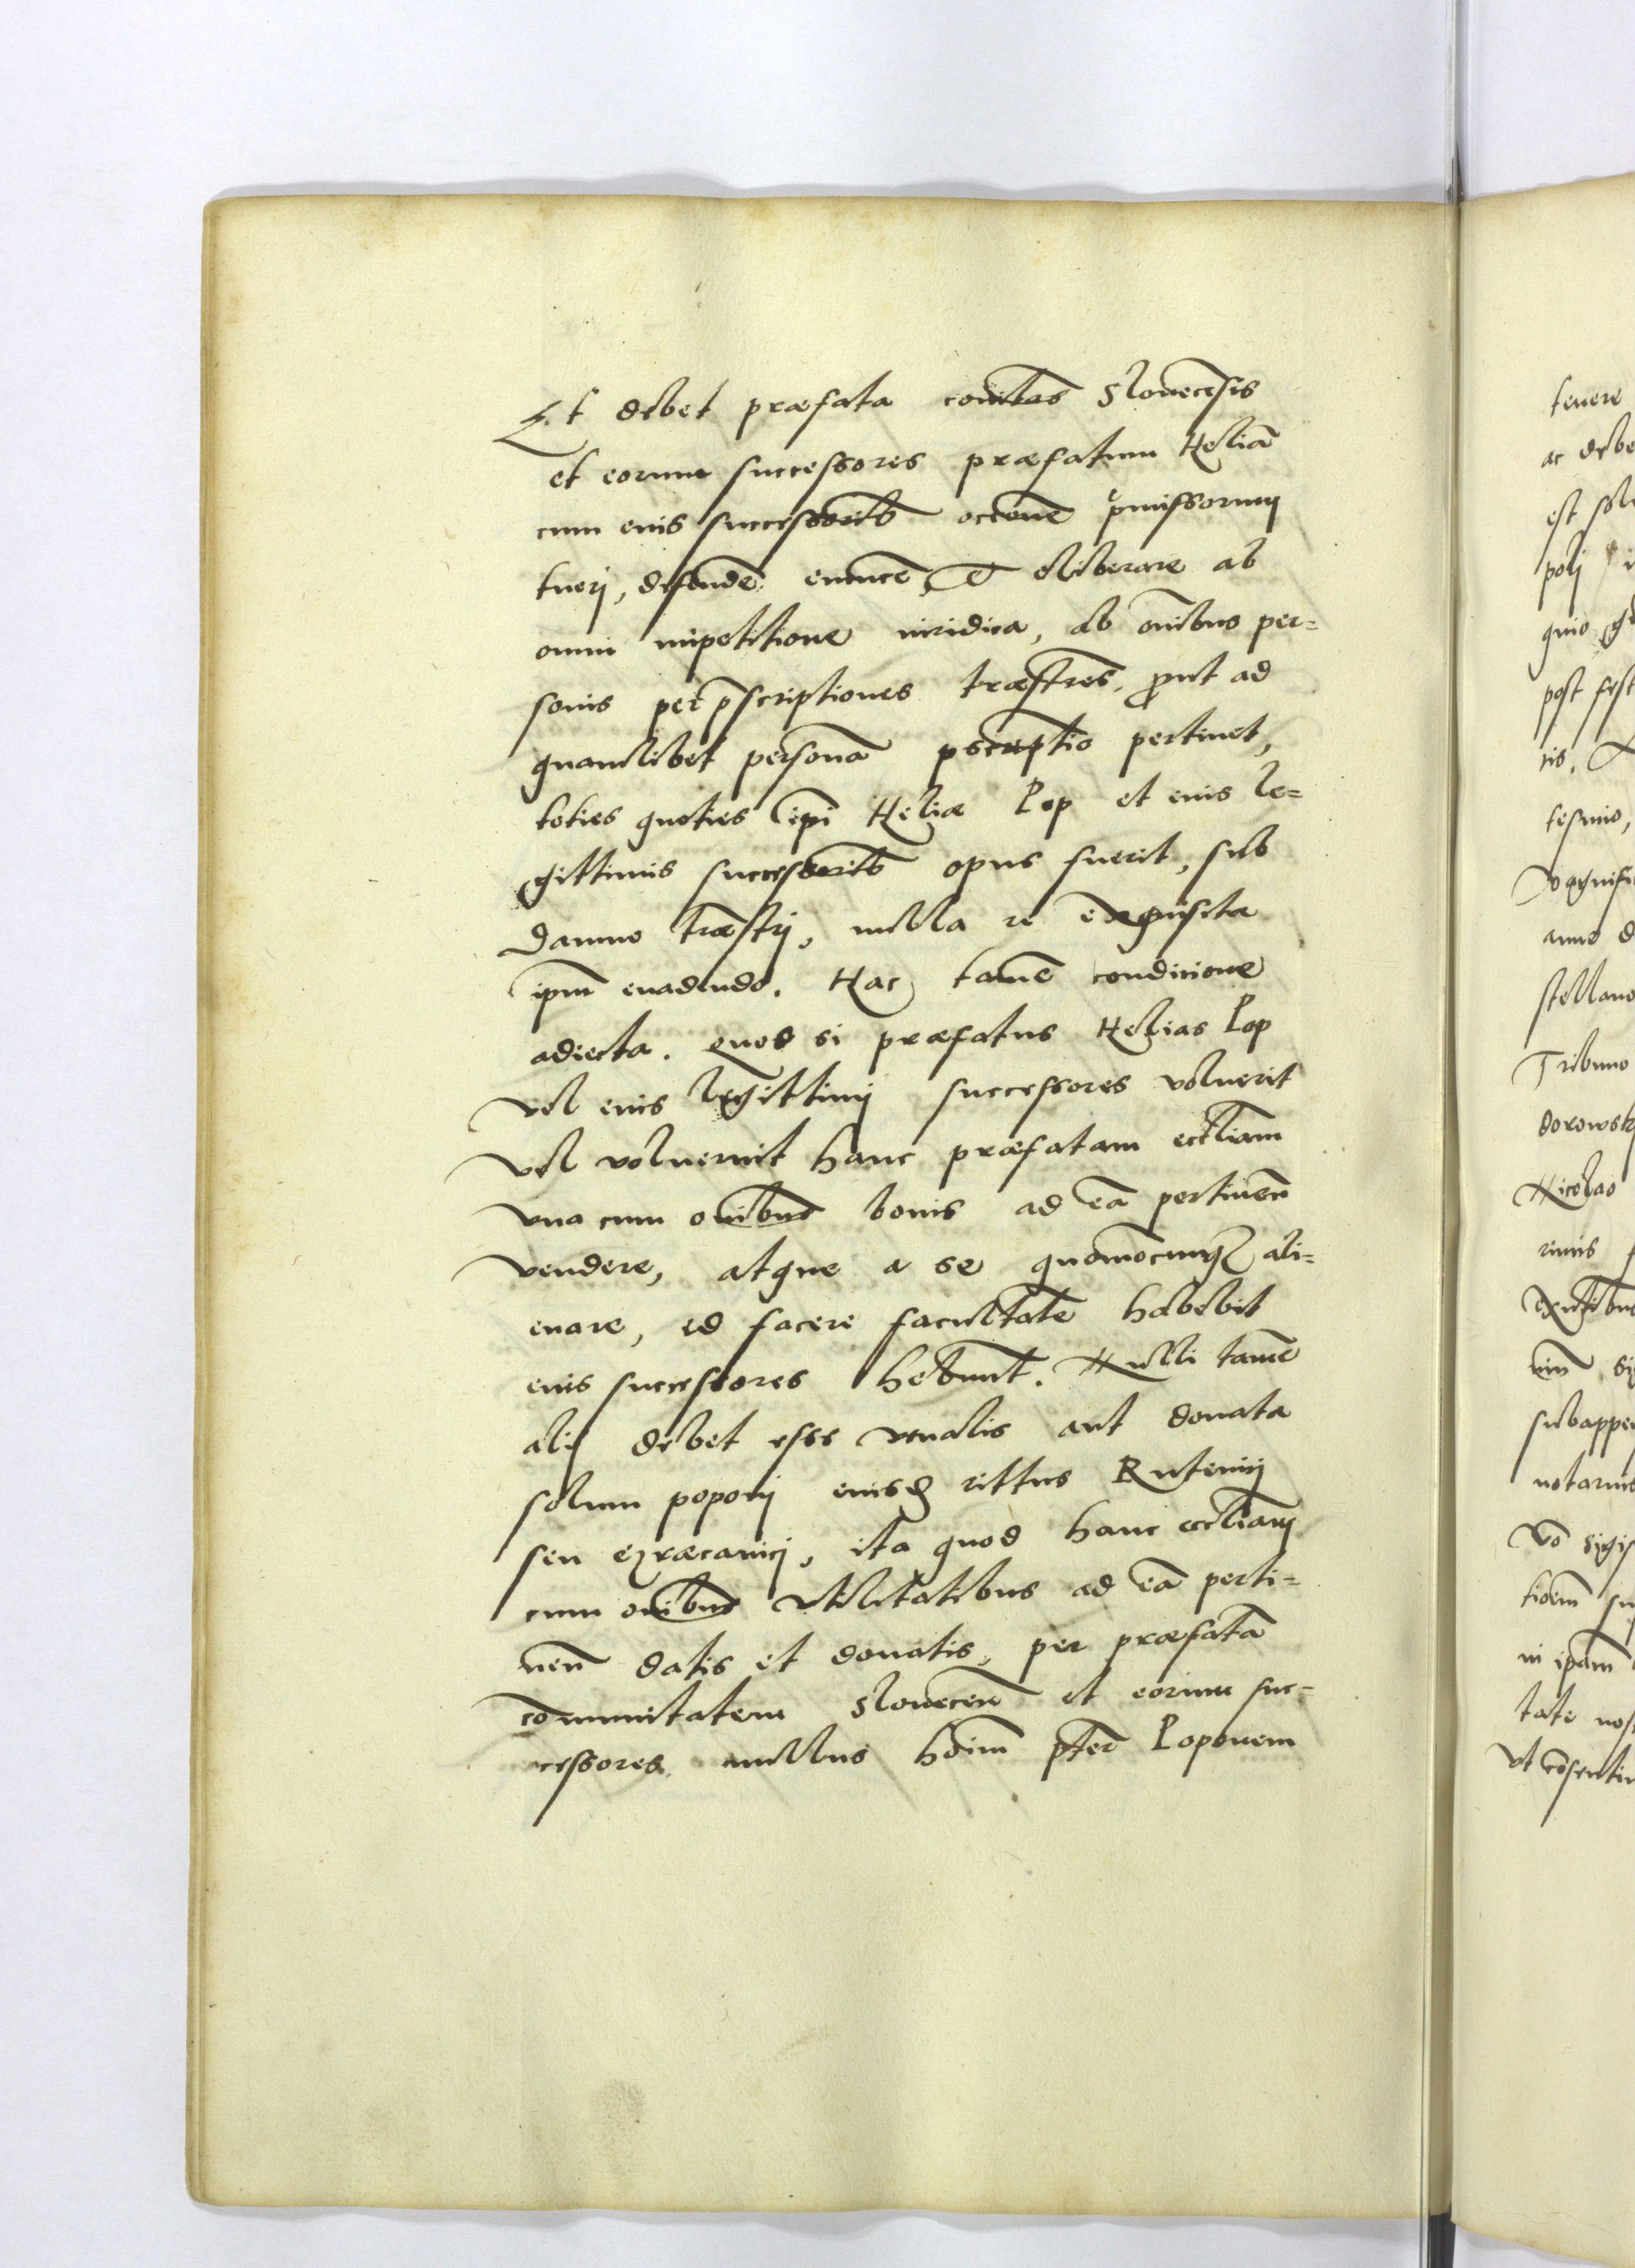 Et debet præfata coñitas Slonecēsis
et eorum successores præfatum Heliā
cum eius successoribs occōne p̄missorum
tueri, defendē euincē et eliberare ab
omni impetitione iuridica, ab om̄ibus per=
sonis per p̄scriptiones træstres, prout ad
quamlibet personā pscriptio pertinet,
toties quoties ipi Heliæ Pop et eius le=
gittimis successoribs opus fuerit, sub
damno træstri, nulla re exquisita
ipm̄ euadendo. Hac tamē condicione
adiecta. quod si præfatus Helias Pop
vel eius legittimi successores voluerit
vel voluerint hanc præfatam eccliam
vna cum om̄ibus bonis ad eā pertineñ
vendere, atque a se quomocunqȝ ali=
enare, id facere facultatē habebit
eius successores hebunt. Nulli tamē
alij debet esse venalis aut donata
solum poponi eiusd rittus Rutenici
seu græcanici, ita quod hanc eccliam
cum om̄ibus vtilitatibus ad eā perti=
neñ datis et donatis, per præfatā
cōmunitatem Sloneceñ et eorum suc=
cessores nullus hoīm p̄ter Poponem
tenere
ac debe
est sol
post fest
ris.
tesimo,
magnifi
anno d
stellano
Tribuno
dorowsk
Nicolao
subappe
notarius
tate nos
vt cōsentin